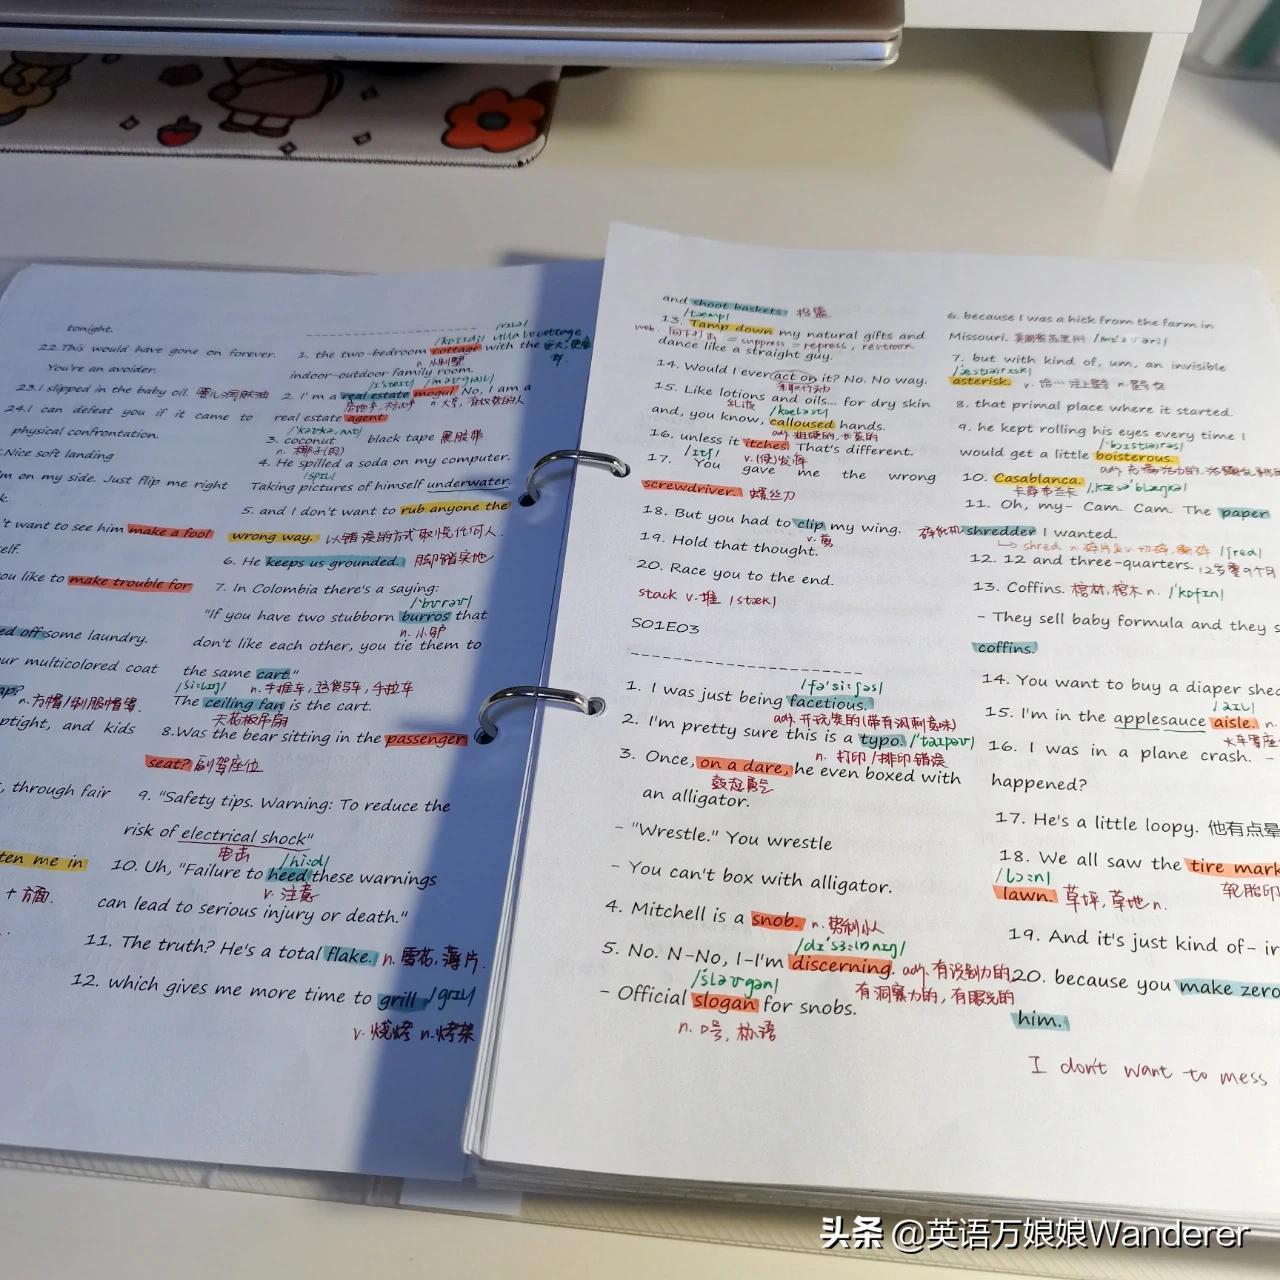 tonight.
22. This would have gone on forever.
You're an avoider.
23. I slipped in the baby oil. 婴儿润肤油
24. I can defeat you if it came to
physical confrontation.
Nice soft landing
on my side. Just flip me right
't want to see him make a fool
self.
you like to make trouble for
ed off some laundry.
ur multicolored coat
n. 方帽/制服帽等
ptight, and kids
, through fair
ten me in
+ 方面.
/kɒtɪdʒ/ villa vs cottage
1. the two-bedroom cottage with the
indoor-outdoor family room.
2. I'm a real estate mogul No, I am a
n. 大亨, 有权势的人
real estate agent
3. coconut black tape 黑胶带
n. 椰子(肉)
4. He spilled a soda on my computer.
/spɪl/
Taking pictures of himself underwater.
5. and I don't want to rub anyone the
wrong way. 以错误的方式取悦任何人.
6. He keeps us grounded. 脚踏实地
7. In Colombia there's a saying:
"If you have two stubborn burros that
n. 小驴
don't like each other, you tie them to
the same cart."
/si:lɪŋ/ n. 手推车, 运货马车, 手拉车
The ceiling fan is the cart.
天花板吊扇
8. Was the bear sitting in the passenger
seat? 副驾座位
9. "Safety tips. Warning: To reduce the
risk of electrical shock"
电击 /hi:d/
10. Uh, "Failure to heed these warnings
v. 注意
can lead to serious injury or death."
11. The truth? He's a total flake. n. 雪花, 薄片.
12. which gives me more time to grill /grɪl/
v. 烧烤 n. 烤架
and shoot baskets. 投篮
/tæmp/
13. Tamp down my natural gifts and
= suppress = repress, restrain
dance like a straight guy.
14. Would I ever act on it? No. No way.
采取行动
15. Like lotions and oils... for dry skin
乳液
and, you know, calloused hands.
adj. 粗硬的, 长茧的
16. unless it itches. That's different.
/ɪtʃ/ v. (使)发痒
17. You gave me the wrong
screwdriver. 螺丝刀
18. But you had to clip my wing.
v. 剪
19. Hold that thought.
20. Race you to the end.
stack v. 堆 /stæk/
S01E03
/fə'si:ʃəs/
1. I was just being facetious.
adj. 开玩笑的(带有讽刺意味)
2. I'm pretty sure this is a typo. /'taɪpəʊ/
n. 打印/排印错误
3. Once, on a dare, he even boxed with
鼓起勇气
an alligator.
- "Wrestle." You wrestle
- You can't box with alligator.
4. Mitchell is a snob. n. 势利小人
/dɪ'sɜ:nɪŋ/
5. No. N-No, I-I'm discerning. adj. 有识别力的
/'sləʊgən/ 有洞察力的, 有眼光的
- Official slogan for snobs.
n. 口号, 标语
6. because I was a hick from the farm in
Missouri. 美国密苏里州
7. but with kind of, um, an invisible
asterisk.
8. that primal place where it started.
9. he kept rolling his eyes every time I
would get a little boisterous.
10. Casablanca.
卡萨布兰卡
11. Oh, my- Cam. Cam. The paper
碎纸机 shredder I wanted.
12. 12 and three-quarters. 12岁零9个月
13. Coffins. 棺材, 棺木 n. /'kɒfɪn/
- They sell baby formula and they s
coffins.
14. You want to buy a diaper
/aɪl/
15. I'm in the applesauce aisle. n.
16. I was in a plane crash. -
happened?
17. He's a little loopy. 他有点晕
18. We all saw the tire mark
/lɔ:n/ 轮胎印
lawn. 草坪, 草地 n.
19. And it's just kind of- in
20. because you make zero
him.
I don't want to mess
头条 @英语万娘娘Wanderer